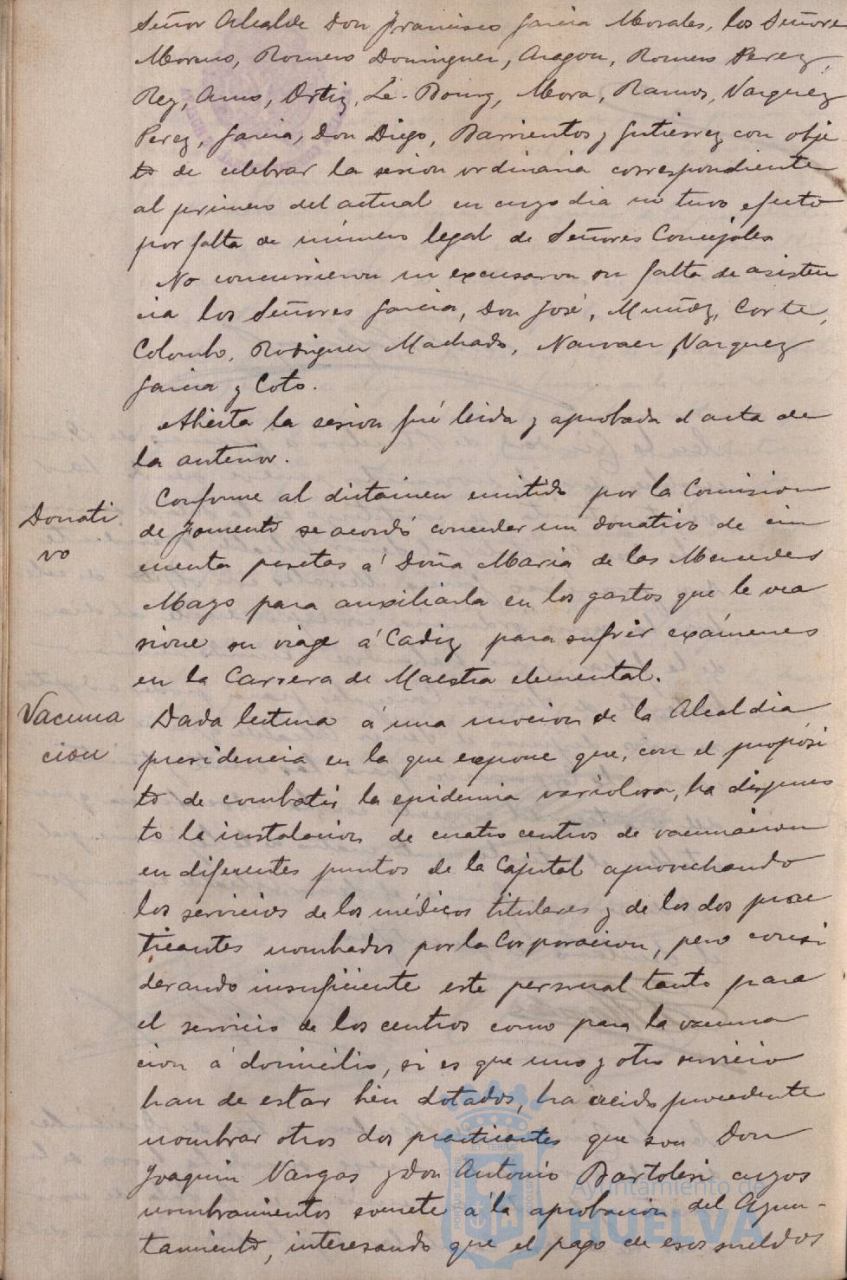 Señor Alcalde Don Francisco Garcia Morales, los Señores
Moreno, Romero Dominguez, Aragon, Romero Perez,
Rey, Amo, Ortiz, Le-Bourg, Mora, Ramos, Vazquez
Perez, Garcia, Don Diego, Barrientos y Gutierrez con obje
to de celebrar la sesion ordinaria correspondiente
al primero del actual en cuyo dia no tuvo efecto
por falta de número legal de Señores Concejales
No concurrieron ni excusaron su falta de asisten
cia los Señores Garcia, Don José, Muñoz, Corte,
Colombo, Rodriguez Machado, Narvaez, Vazquez
Garcia y Coto.
Abierta la sesion fué leida y aprobada el acta de
la anterior.
Donati
vo
Conforme al dictamen emitido por la Comision
de Fomento se acordó conceder un donativo de cin
cuenta pesetas á Doña Maria de las Mercedes
Mayo para auxiliarla en los gastos que le oca
sione su viage á Cadiz para sufrir exámenes
en la Carrera de Maestra elemental.
Vacuna
cion
Dada lectura á una mocion de la Alcaldia
presidencia en la que expone que, con el propósi
to de combatir la epidemia variolosa, ha dispues
to la instalacion de cuatro centros de vacunacion
en diferentes puntos de la Capital aprovechando
los servicios de los médicos titulares y de los dos prac
ticantes nombrados por la Corporacion, pero consi
derando insuficiente este personal tanto para
el servicio de los centros como para la vacuna
cion á domicilio, si es que uno y otro servicio
han de estar bien dotados, ha creido procedente
nombrar otros dos practicantes que son Don
Joaquin Vargas y Don Antonio Bartolesi cuyos
nombramientos somete á la aprobacion del Ayun-
tamiento, interesando que el pago de esos sueldos
Ayuntamiento de
HUELVA